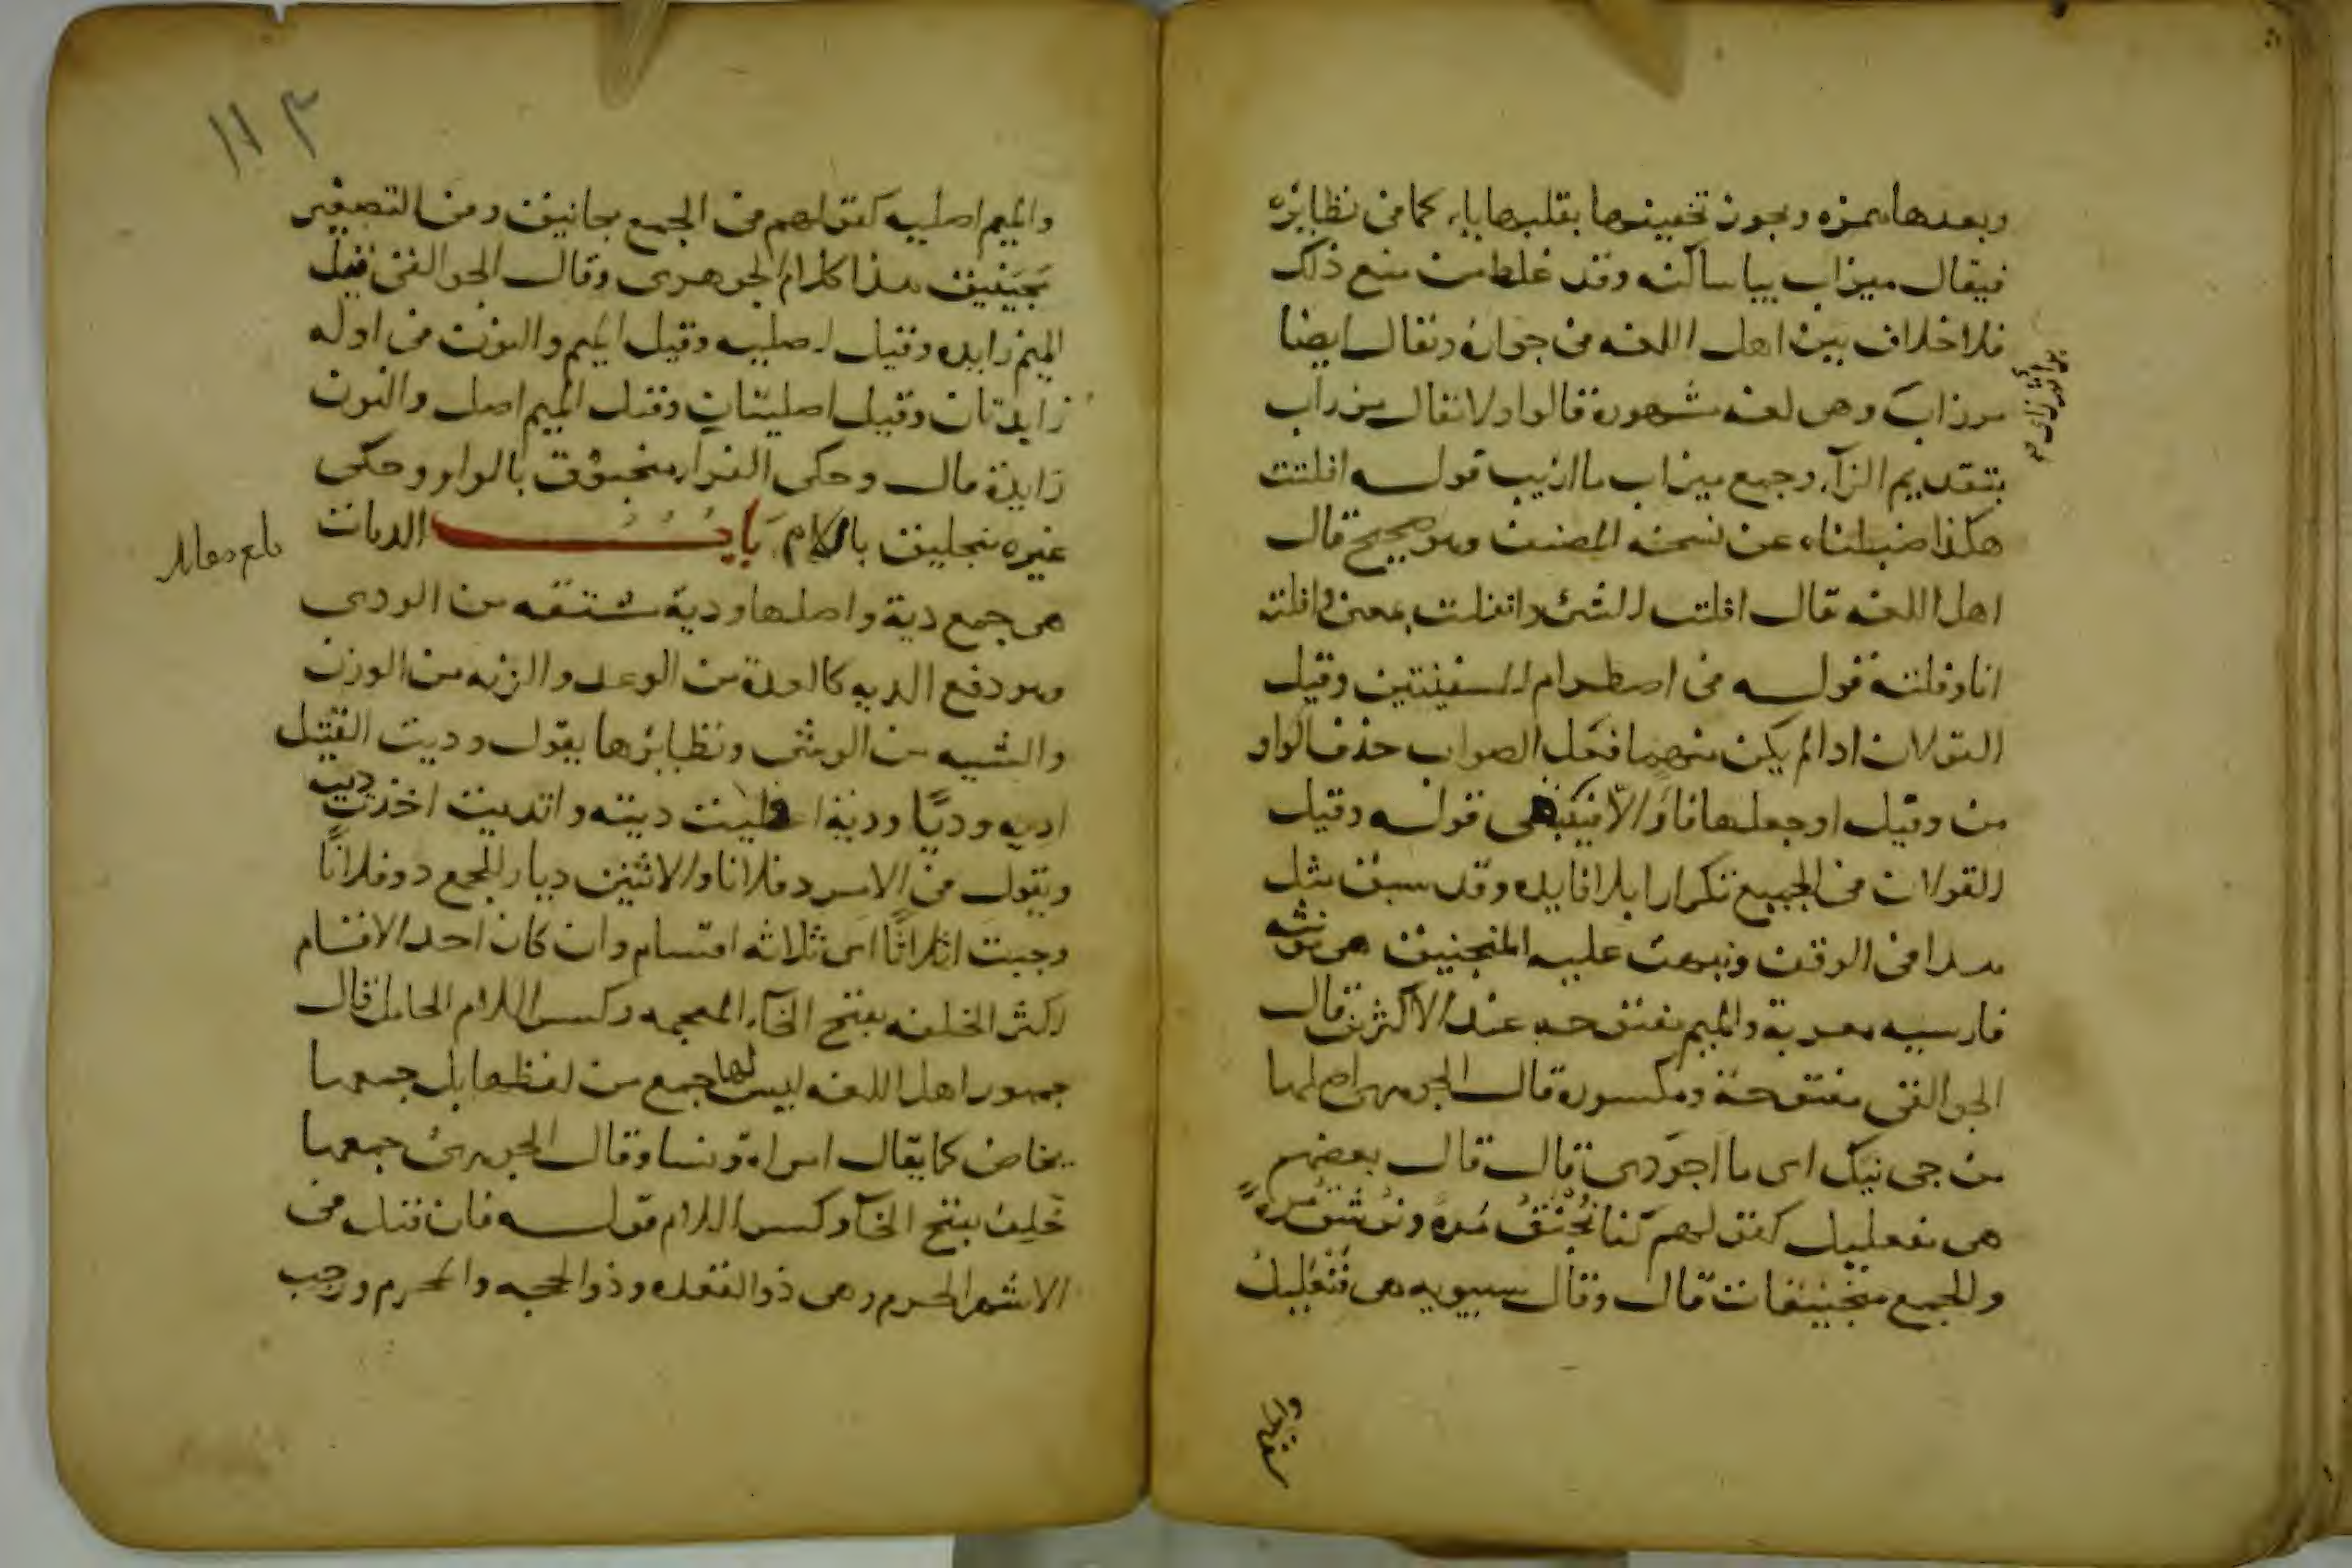 وبعدها همزه ويجوز تخفيفها بقلبها ياء كما في نظايره
فيقال ميزاب بيا ساكنه وقد غلط من منع ذلك
فلا خلاف بين اهل اللغه في جوازه ويقال ايضا
مرزاب وهي لغه مشهورة قالوا ولا تقال مزراب
بتقديم الزآء وجمع ميزاب مازيب قوله افلتت
هكذا ضبطناه عن نسخه المصنف وهو صحيح قال
اهل اللغه تقال افلت الشئ وانفلت بمعنى وافلته
انا وفلته قوله في اصطدام السفينتين وقيل
القولان اذا لم يكن منهما فعل الصواب حذف الواو
من وقيل او جعلها فآ والا فيبقى قوله وقيل
القولان في الجميع تكرارا بلا فايده وقد سبق مثل
هذا في الوقف ونبهت عليه المنجنيق هي مونثه
فارسيه معربة والميم مفتوحه عند الاكثرين قال
الجواليقي مفتوحة ومكسورة قال الجوهري اصلها
من جي نيك اى ما اجودى قال قال بعضهم
هي منفعليل كقولهم كنا نُجنَق مَرة ونُرشق مرةً
والجمع منجنيقات قال وقال سيبويه هي فنعليل
والميم اصليه كقولهم في الجمع مجانيق وفي التصغير
مُجَينيق هذا كلام الجوهرى وقال الجواليقي قيل
الميم زايده وقيل اصليه وقيل الميم والنون في اوله
زايدتان وقيل اصليتان وقيل الميم اصل والنون
زايدة قال وحكى الفرآء منجنوق بالواو وحكى
غيره منجليق باللام باب الديات
هي جمع دية واصلها ودية مشتقه من الودى
وهو دفع الديه كالعدة من الوعد والزنه من الوزن
والشيه من الوشى ونظايرها يقول وديت القتيل
اديه وديًا ودية اعطيت ديته واتديت اخذت ديته
ويقول في الامر د فلانا والاثنين ديا وللجمع دو فلانًا
وجبت اثلاثًا اى ثلاثه اقسام وان كان احد الاقسام
اكثر الخلفه بفتح الخآء المعجمه وكسر اللام الحامل قال
جمهور اهل اللغه ليس لها جمع من لفظها بل جمعها
مخاض كما يقال امراة ونسا وقال الجوهري جمعها
خَلِف بفتح الخآ وكسر اللام قوله فان قتل في
الاشهر الحرم وهي ذو القعده وذو الحجه والمحرم ورجب